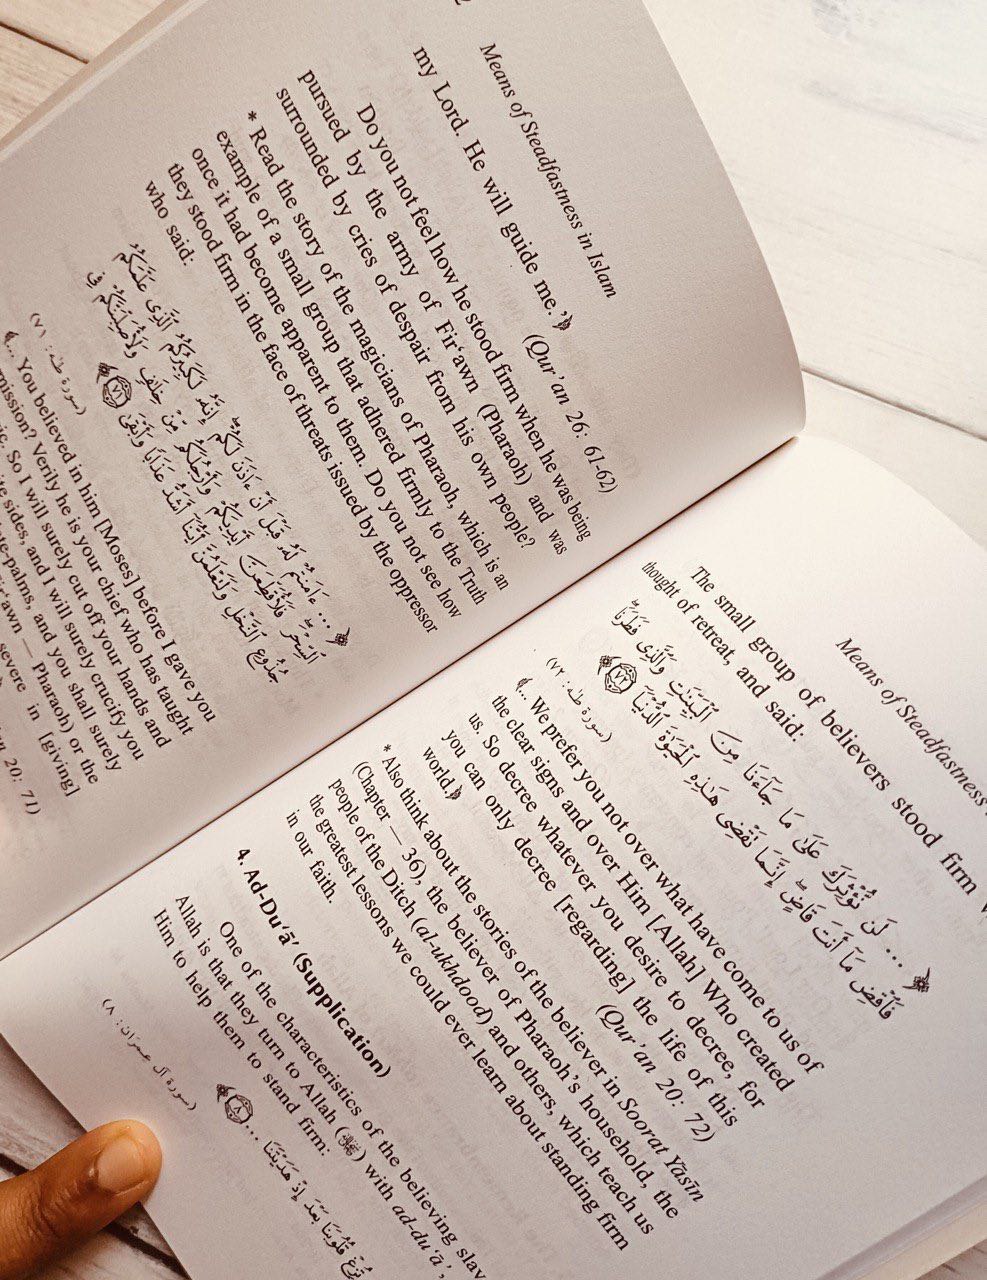 Means of Steadfastness in Islam
my Lord. He will guide me.’﴾
(Qur’an 26: 61-62)
Do you not feel how he stood firm when he was being
pursued by the army of Fir‘awn (Pharaoh) and was
surrounded by cries of despair from his own people?
* Read the story of the magicians of Pharaoh, which is an
example of a small group that adhered firmly to the Truth
once it had become apparent to them. Do you not see how
they stood firm in the face of threats issued by the oppressor
who said:
﴿... ءَامَنتُمْ لَهُۥ قَبْلَ أَنْ ءَاذَنَ لَكُمْ إِنَّهُۥ لَكَبِيرُكُمُ ٱلَّذِى عَلَّمَكُمُ
ٱلسِّحْرَ فَلَأُقَطِّعَنَّ أَيْدِيَكُمْ وَأَرْجُلَكُم مِّنْ خِلَٰفٍ وَلَأُصَلِّبَنَّكُمْ فِى
جُذُوعِ ٱلنَّخْلِ وَلَتَعْلَمُنَّ أَيُّنَآ أَشَدُّ عَذَابًا وَأَبْقَىٰ ٧١﴾
(سورة طه: ٧١)
﴾... You believed in him [Moses] before I gave you
mission? Verily he is your chief who has taught
ic. So I will surely cut off your hands and
ite sides, and I will surely crucify you
te-palms, and you shall surely
ir‘awn — Pharaoh) or the
severe in [giving]
20: 71)
Means of Steadfastness
The small group of believers stood firm
thought of retreat, and said:
﴿... لَن نُّؤْثِرَكَ عَلَىٰ مَا جَآءَنَا مِنَ ٱلْبَيِّنَٰتِ وَٱلَّذِى فَطَرَنَا
فَٱقْضِ مَآ أَنتَ قَاضٍ إِنَّمَا تَقْضِى هَٰذِهِ ٱلْحَيَوٰةَ ٱلدُّنْيَآ ٧٢﴾
(سورة طه: ٧٢)
﴾... We prefer you not over what have come to us of
the clear signs and over Him [Allah] Who created
us. So decree whatever you desire to decree, for
you can only decree [regarding] the life of this
world.﴿
(Qur’an 20: 72)
* Also think about the stories of the believer in Soorat Yāsīn
(Chapter — 36), the believer of Pharaoh’s household, the
people of the Ditch (al-ukhdood) and others, which teach us
the greatest lessons we could ever learn about standing firm
in our faith.
4. Ad-Du‘ā’ (Supplication)
One of the characteristics of the believing slav
Allah is that they turn to Allah (ﷻ) with ad-du‘ā’,
Him to help them to stand firm:
تُزِغْ قُلُوبَنَا بَعْدَ إِذْ هَدَيْتَنَا ... ٨﴾
(سورة آل عمران: ٨)